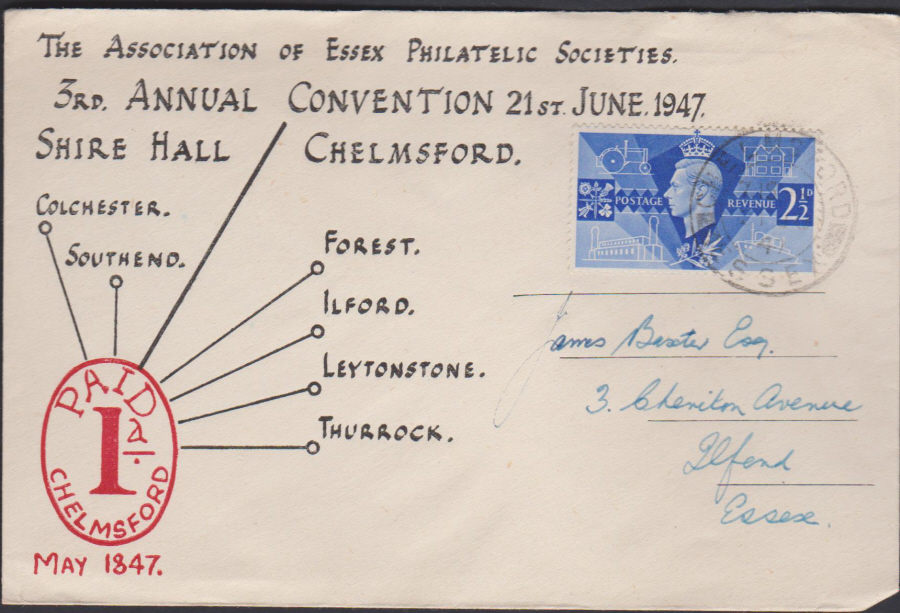 THE ASSOCIATION OF ESSEX PHILATELIC SOCIETIES.
3RD. ANNUAL CONVENTION 21ST. JUNE. 1947.
SHIRE HALL CHELMSFORD.
COLCHESTER.
SOUTHEND.
FOREST.
ILFORD.
LEYTONSTONE.
THURROCK.
PAID
1d.
CHELMSFORD
MAY 1847.
POSTAGE REVENUE 2½D
ESSEX
James Baxter Esq.
3. Cheniton Avenue
Ilford
Essex.